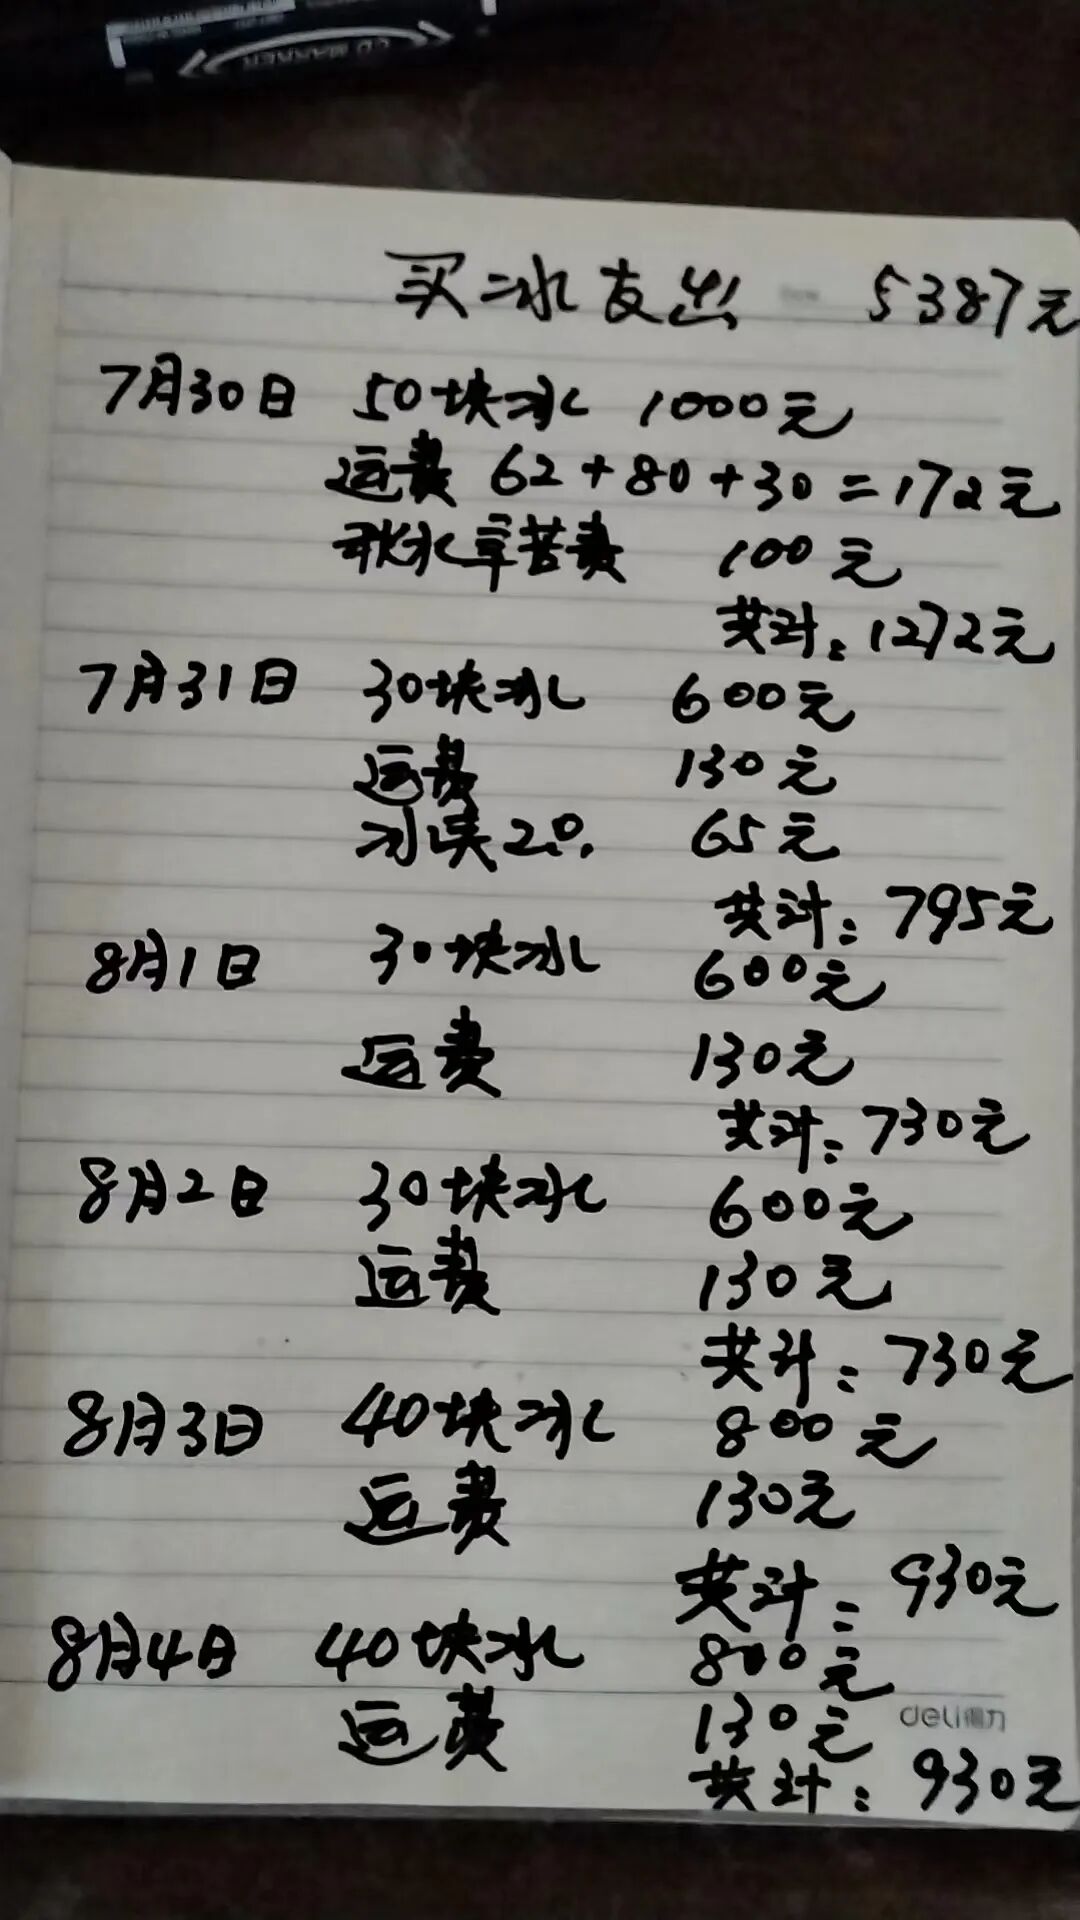 CD MARKER
买冰支出 5387元
7月30日 50块冰 1000元
运费 62+80+30=172元
秋冰辛苦费 100元
共计:1272元
7月31日 30块冰 600元
运费 130元
65元
共计:795元
8月1日 30块冰 600元
运费 130元
共计:730元
8月2日 30块冰 600元
运费 130元
共计:730元
8月3日 40块冰 800元
运费 130元
共计:930元
8月4日 40块冰 800元
运费 130元
deli得力
共计:930元